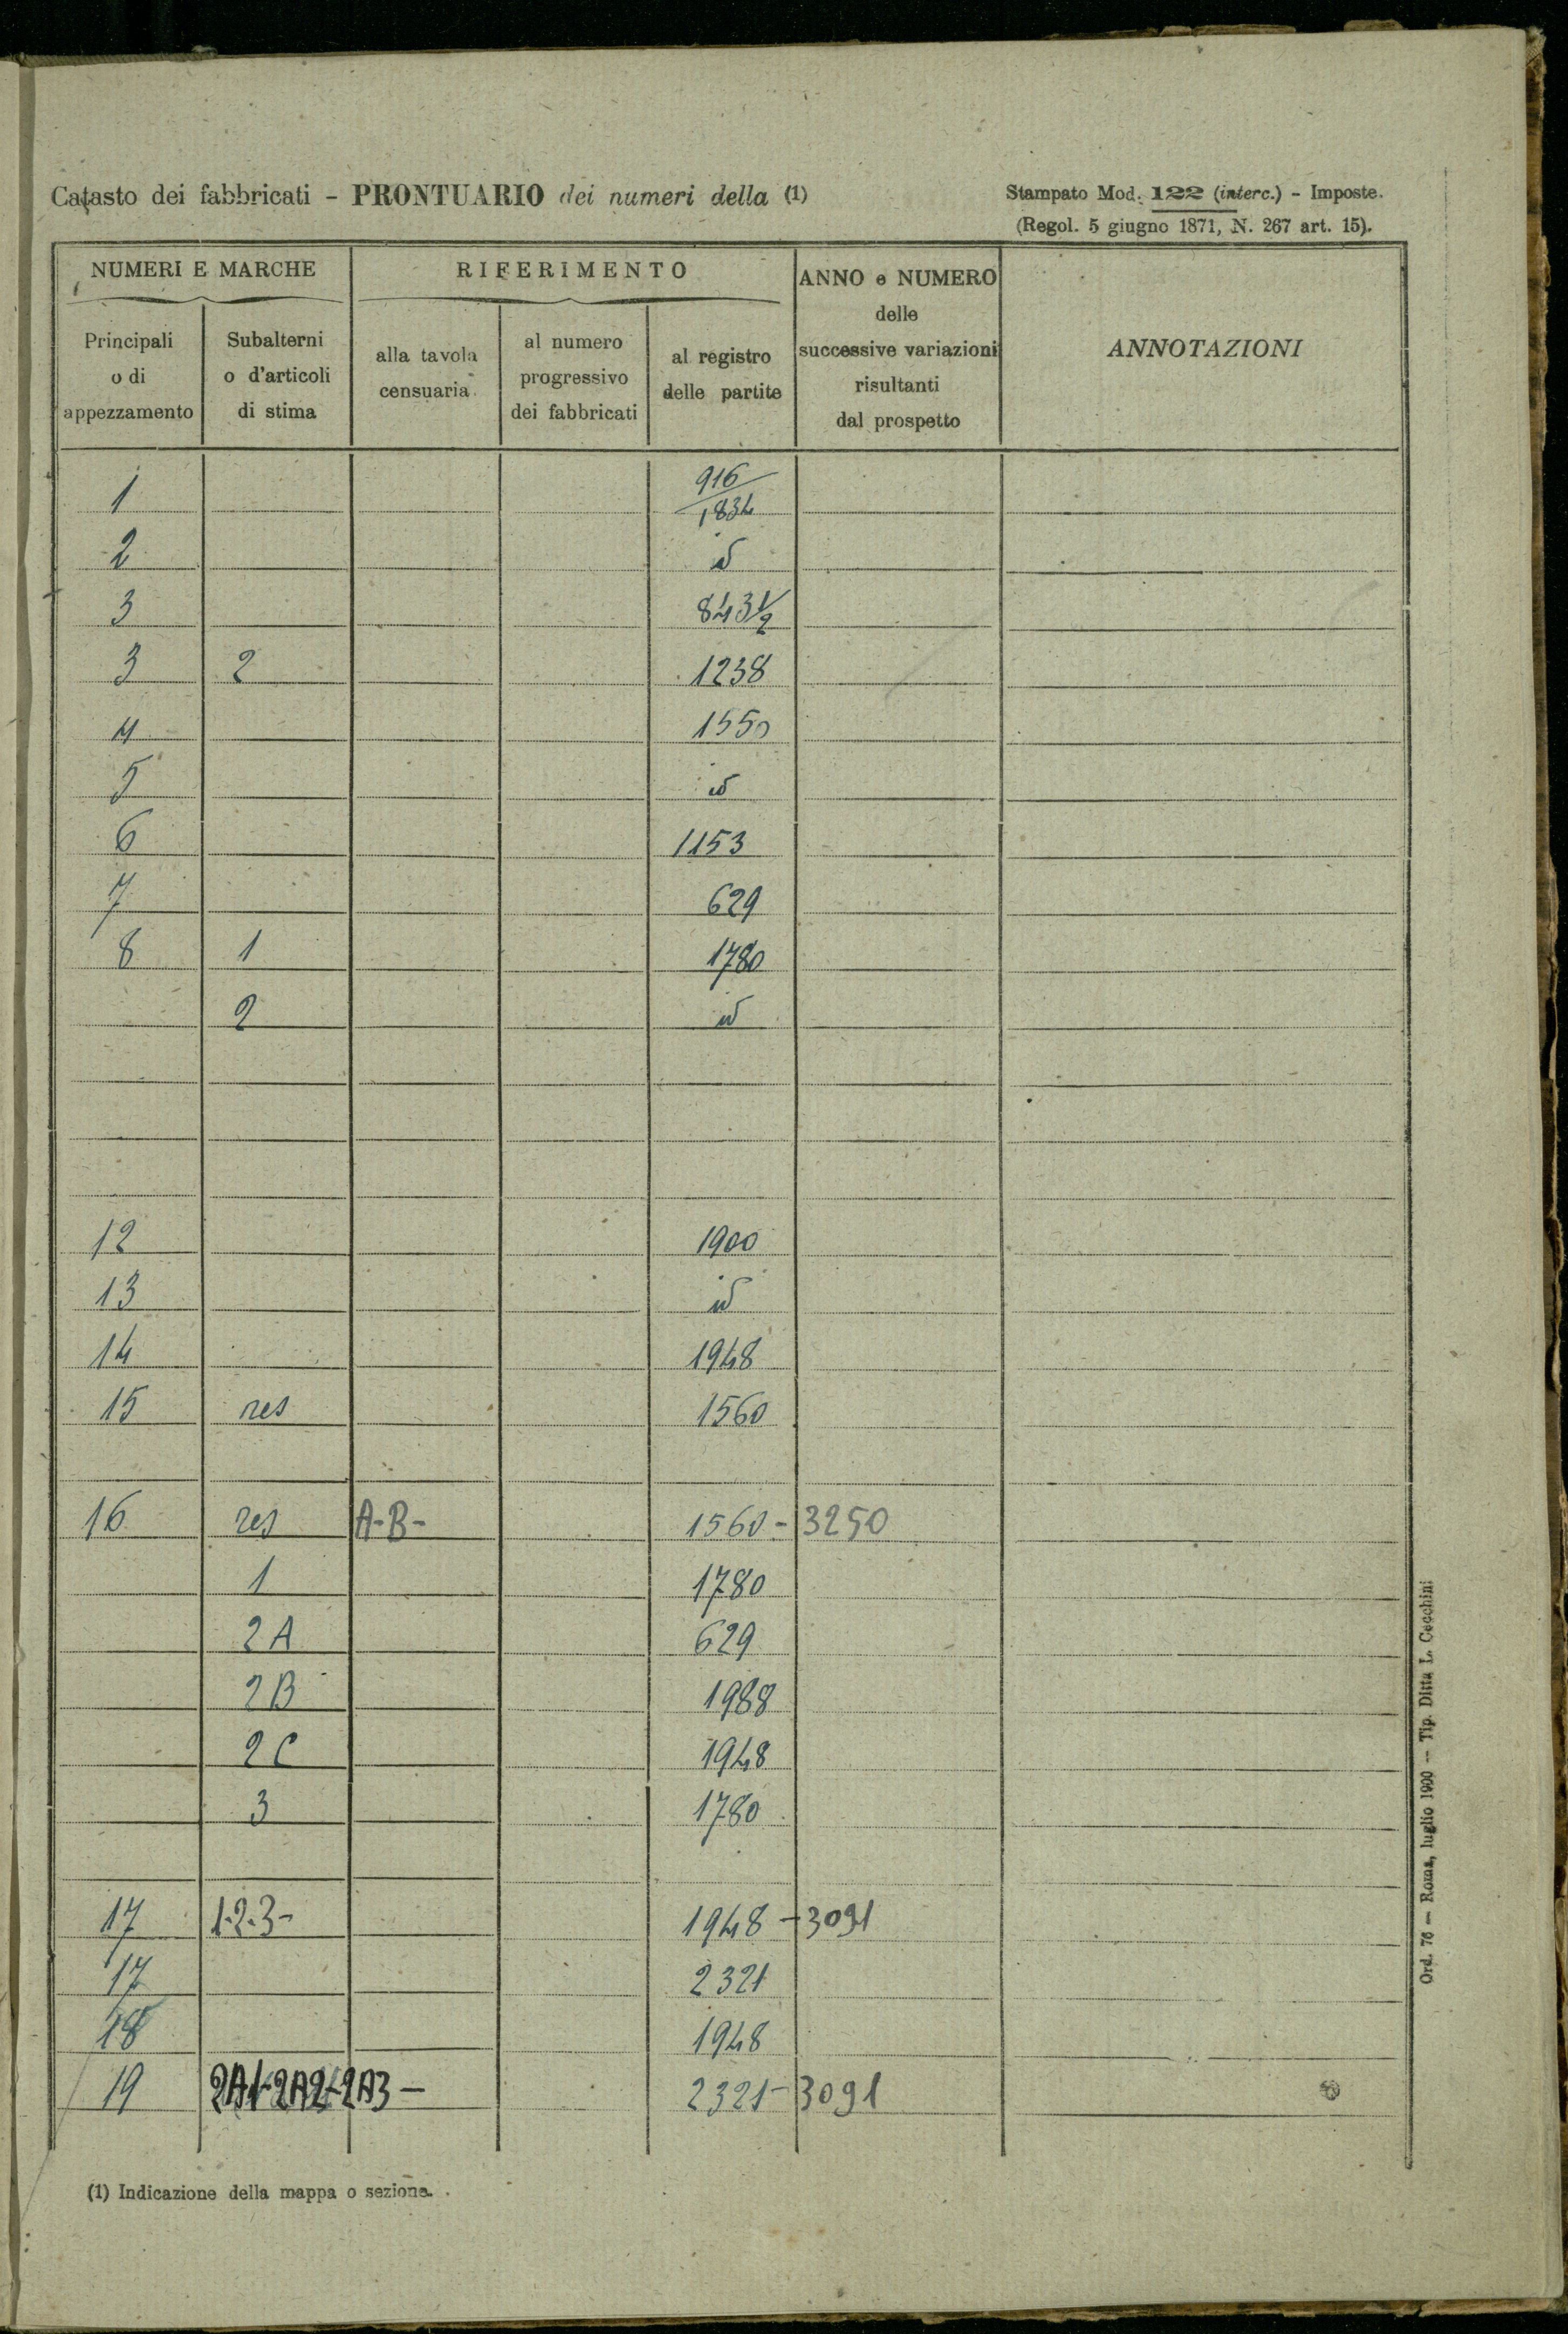 Catasto dei fabbricati - PRONTUARIO dei numeri della (1)
Stampato Mod. 122 (interc.) - Imposte.
(Regol. 5 giugno 1871, N. 267 art. 15).
NUMERI E MARCHE
RIFERIMENTO
ANNO e NUMERO
delle
successive variazioni
risultanti
dal prospetto
ANNOTAZIONI
Principali
o di
appezzamento
Subalterni
o d'articoli
di stima
alla tavola
censuaria
al numero
progressivo
dei fabbricati
al registro
delle partite
1 916/1834
2 id
3 843 1/2
3 2 1238
4 1550
5 id
6 1153
7 629
8 1 1780
2 id
12 1900
13 id
14 1948
15 res 1560
16 res A-B- 1560 - 3250
1 1780
2A 629
2B 1988
2C 1948
3 1780
17 1-2-3- 1948 - 3091
17 2321
18 1948
19 2A1-2A2-2A3 - 2321 - 3091
(1) Indicazione della mappa o sezione.
Ord. 76 — Roma, luglio 1900 — Tip. Ditta L. Cecchini